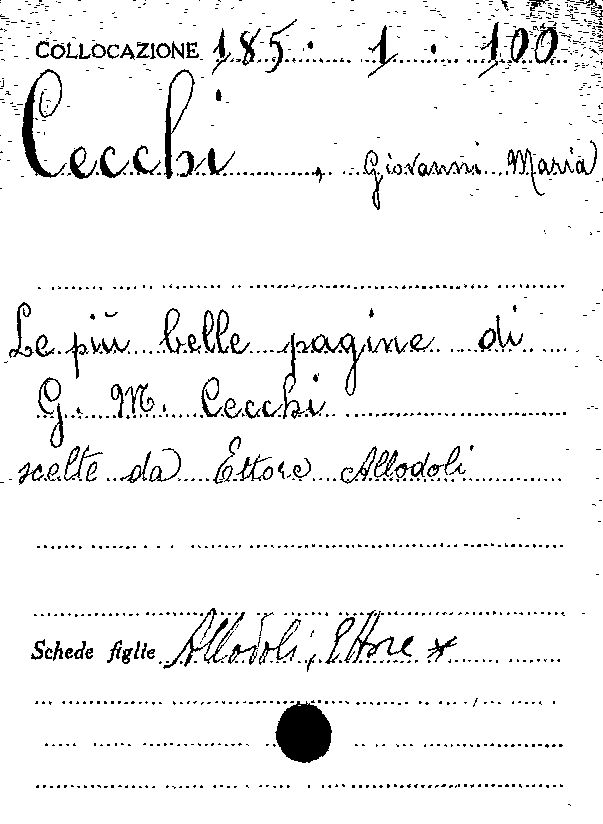 COLLOCAZIONE 185. 1. 100
Cecchi, Giovanni Maria
Le più belle pagine di
G. M. Cecchi
scelte da Ettore Allodoli
Schede figlie Allodoli, Ettore *